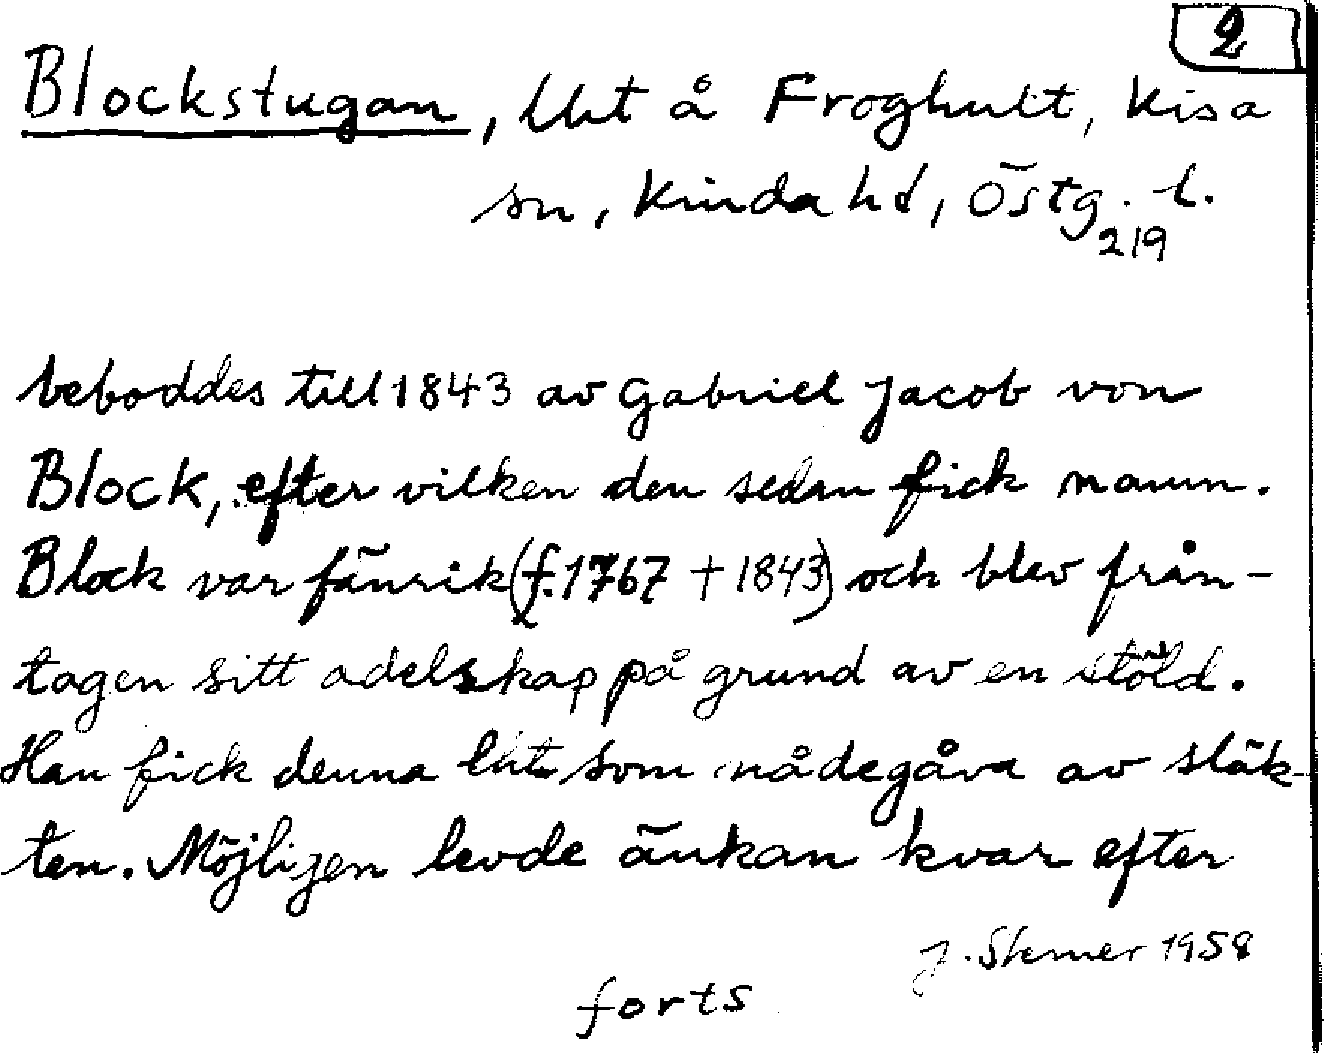 2
Blockstugan, lht å Froghult, Kisa
sn, Kinda hd, Östg. l.
219
beboddes till 1843 av Gabriel Jacob von
Block, efter vilken den sedan fick namn.
Block var fänrik (f. 1767 † 1843) och blev från-
tagen sitt adelskap på grund av en stöld.
Han fick denna lht som nådegåva av släk-
ten. Möjligen levde änkan kvar efter
J. 1958
forts